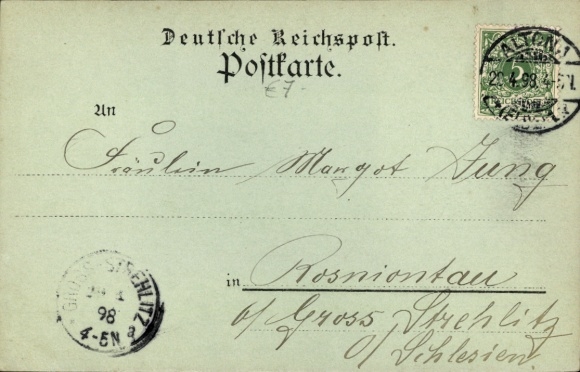 Deutsche Reichspost.
Postkarte.
€7-
An
Fräulein Margot Jung
in Rosniontau
b/ Gross Strehlitz
O/ Schlesien.
ALTONA
4.98
5
GROSS-STREHLITZ
98
4-5N